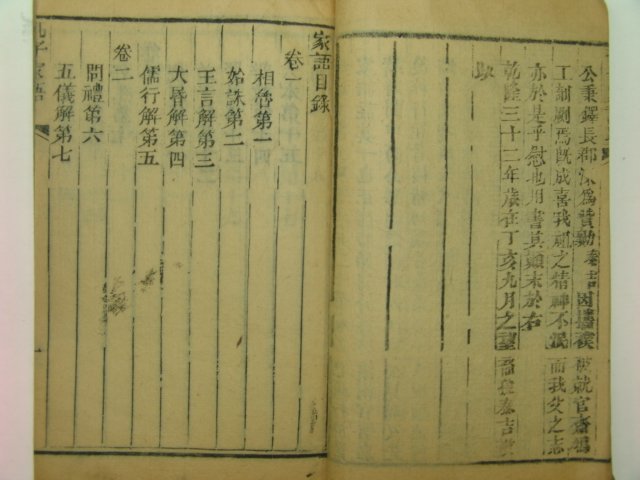 公秉鐸長郡
工剞劂焉旣成喜我祖之精神不泯而我父之志
亦於是乎慰也用書其顚末於右
乾隆三十二年歲在丁亥九月之望
家語目錄
卷一
相魯第一
始誅第二
王言解第三
大昏解第四
儒行解第五
卷二
問禮第六
五儀解第七
孔子家語